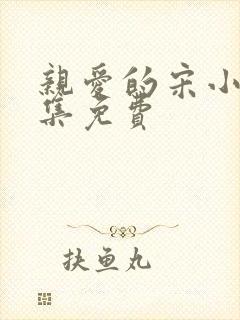 親愛的宋小
集免費
扶魚丸